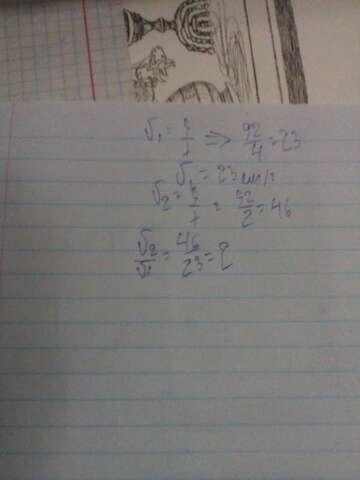 V₁ = S/t ⇒ 92/4 = 23
V₁ = 23 см/с
V₂ = S/t = 92/2 = 46
V₂/V₁ = 46/23 = 2